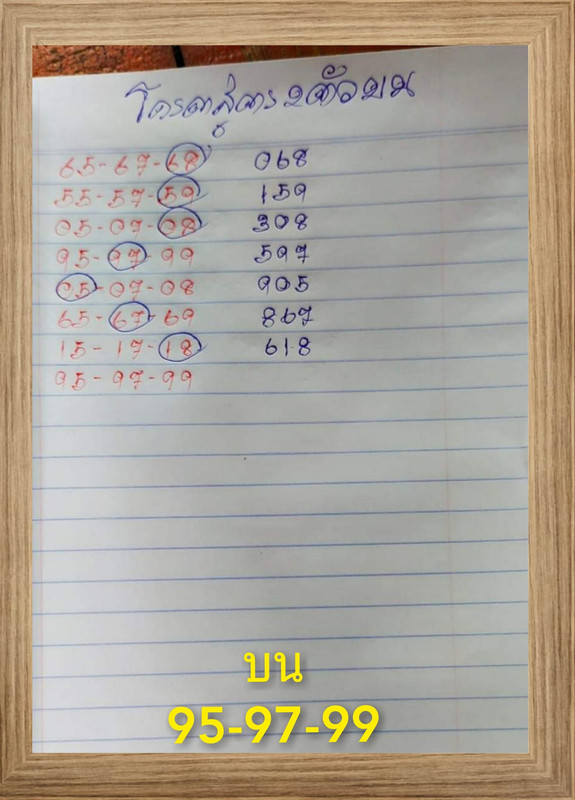 โคราคาสูตร 2 ตัวบน
65-67-68 068
55-57-59 159
05-07-08 308
95-97-99 597
05-07-08 905
65-67-69 867
15-17-18 618
95-97-99
บน
95-97-99